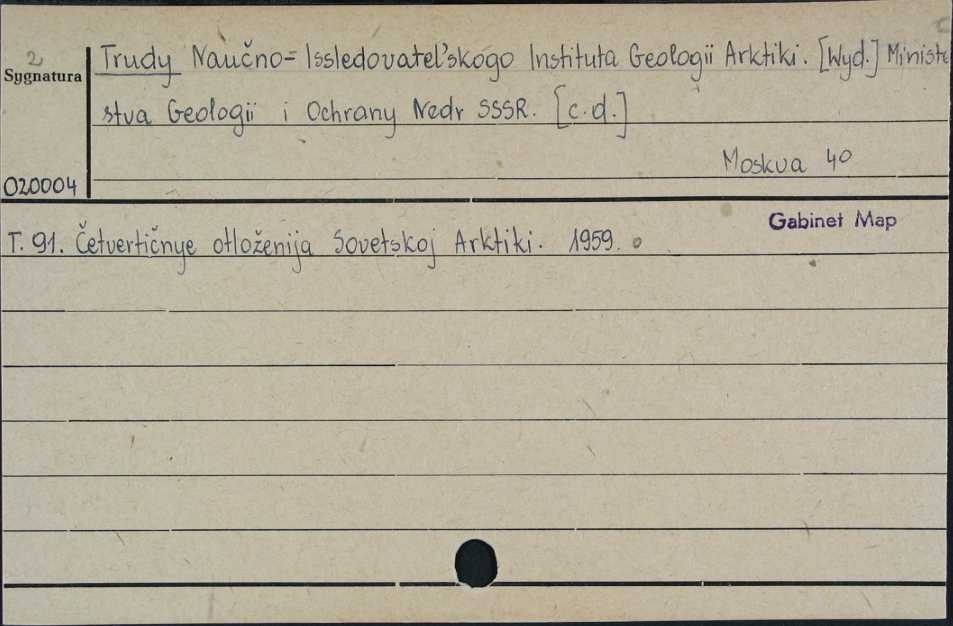 2
Sygnatura
Trudy Naučno=Issledovatel'skogo Instituta Geologii Arktiki. [Wyd.] Ministe
stva Geologii i Ochrany Nedr SSSR. [c.d.]
Moskva 40
020004
Gabinet Map
T. 91. Četvertičnye otloženija Sovetskoj Arktiki. 1959.